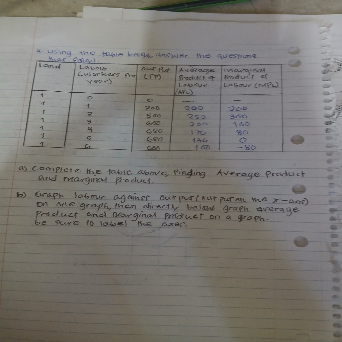 2. Using the table below answer the questions
that follow
Land Labour (workers per year) Output (TP) Average Product of Labour APL Marginal Product of Labour (MPL)
1 0 0 — —
1 1 200 200 200
1 2 500 250 300
1 3 600 200 100
1 4 680 170 80
1 5 680 0
1 6 600 100 -80
a) Complete the table above, finding Average Product
and Marginal Product.
b) Graph labour against output (output on the
on one graph, then directly below graph average
product and marginal product on a graph.
be sure to label the axes.